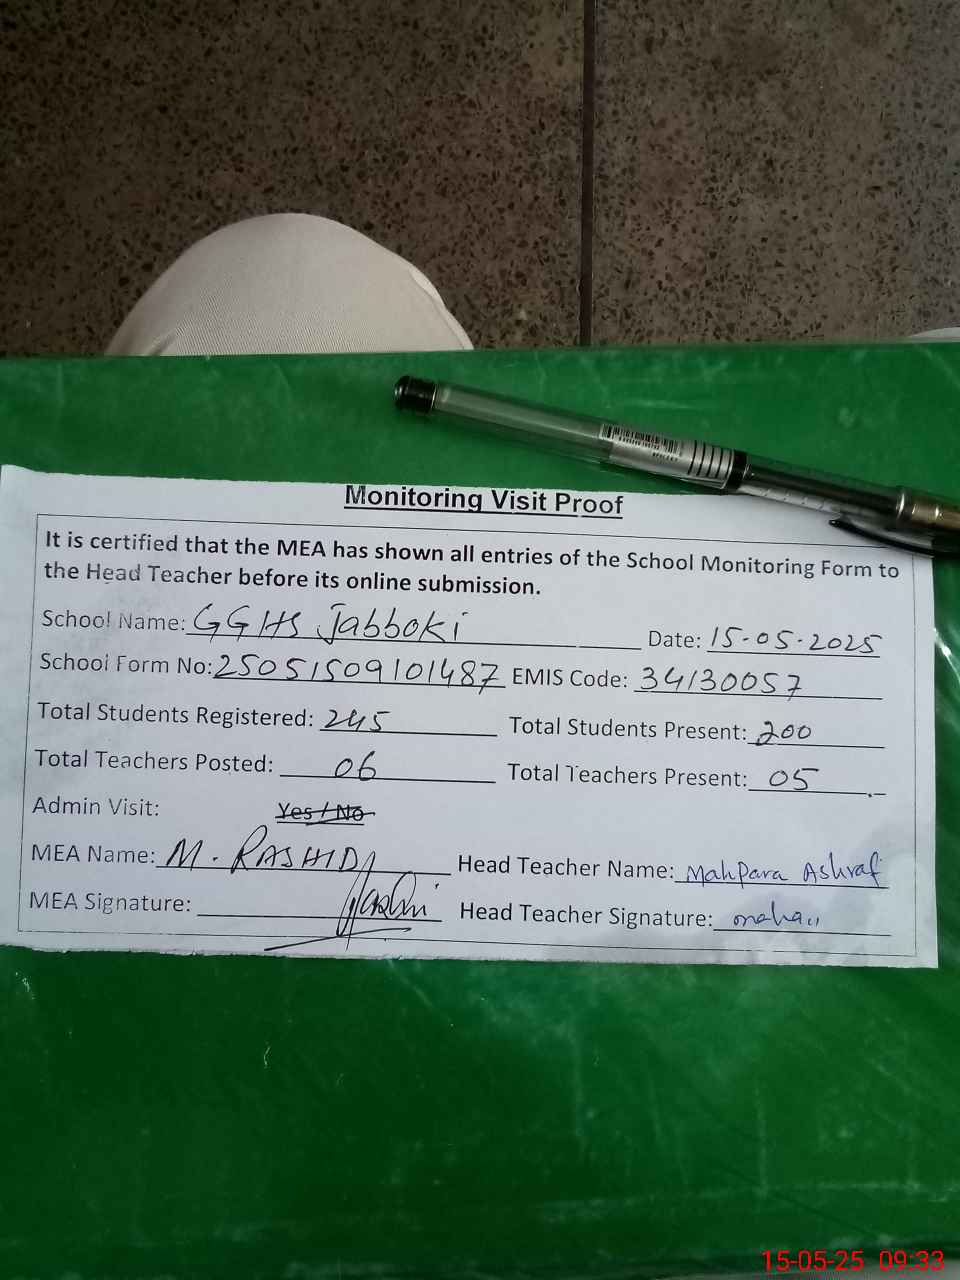 Monitoring Visit Proof
It is certified that the MEA has shown all entries of the School Monitoring Form to
the Head Teacher before its online submission.
School Name: GGHS Jabboki Date: 15-05-2025
School Form No: 25051509101487 EMIS Code: 34130057
Total Students Registered: 245 Total Students Present: 200
Total Teachers Posted: 06 Total Teachers Present: 05
Admin Visit: Yes / No
MEA Name: M. RASHID Head Teacher Name: Mahpara Ashraf
MEA Signature: Head Teacher Signature:
15-05-25 09:33